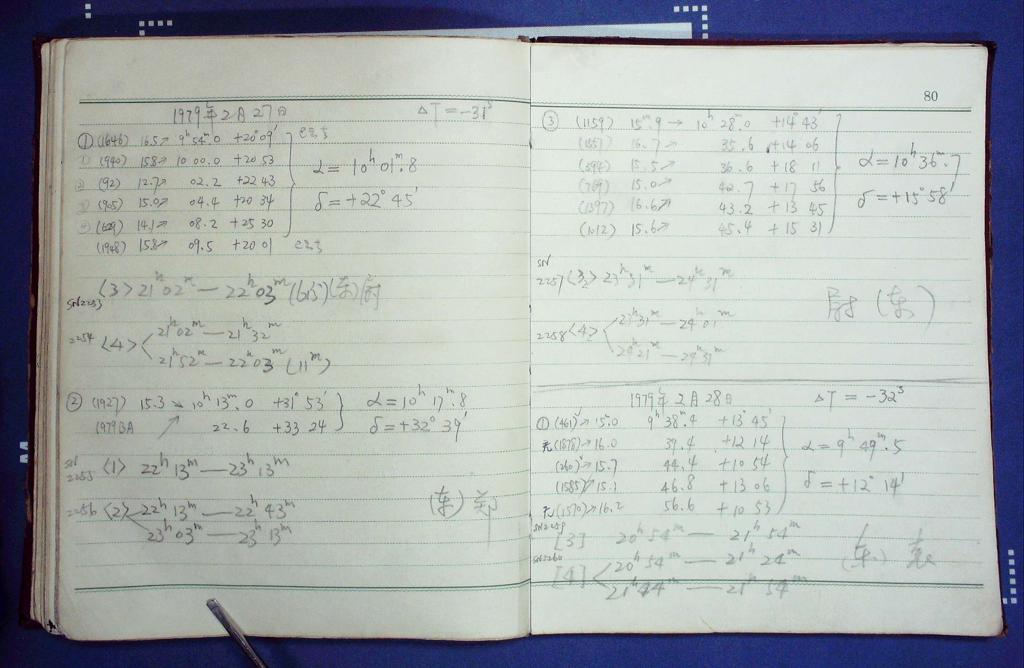 1979年2月27日 ΔT=-31ˢ
① (1646) 16.5↗ 9ʰ54ᵐ.0 +20°09′
(940) 15.8→ 10 00.0 +20 53
(92) 12.7↗ 02.2 +22 43
(905) 15.0↗ 04.4 +20 34
(629) 14.1→ 08.2 +25 30
(1948) 15.8 09.5 +20 01
α=10ʰ01ᵐ.8
δ=+22°45′
SN2253 <3> 21ʰ02ᵐ—22ʰ03ᵐ (61ᵐ) (东)
2254 <4> 21ʰ02ᵐ—21ʰ32ᵐ
21ʰ52ᵐ—22ʰ03ᵐ (11ᵐ)
② (1927) 15.3 ↘ 10ʰ13ᵐ.0 +31°53′ α=10ʰ17ᵐ.8
1979BA ↗ 22.6 +33 24 δ=+32°39′
SN 2255 <1> 22ʰ13ᵐ—23ʰ13ᵐ
2256 <2> 22ʰ13ᵐ—22ʰ43ᵐ (东) 郑
23ʰ03ᵐ—23ʰ13ᵐ
80
③ (1159) 15ᵐ.9→ 10ʰ28ᵐ.0 +14°43′
(1551) 16.7↗ 35.6 +14 06
15.5↗ 36.6 +18 11
(769) 15.0↗ 42.7 +17 56
(1397) 16.6↗ 43.2 +13 45
15.6↗ 45.4 +15 31
α=10ʰ36ᵐ.7
δ=+15°58′
SN 2257 <3> 23ʰ31ᵐ—24ʰ31ᵐ
2258 <4> 23ʰ31ᵐ—24ʰ01ᵐ (东)
24ʰ21ᵐ—24ʰ31ᵐ
1979年2月28日 ΔT=-32ˢ
① (461)→15.0 9ʰ38ᵐ.4 +13°45′
无(1878)→16.0 39.4 +12 14
(260)→15.7 44.4 +10 54
(1585)↗15.1 46.8 +13 06
无(1570)↗16.2 56.6 +10 53
α=9ʰ49ᵐ.5
δ=+12°14′
SN2259 [3] 20ʰ54ᵐ—21ʰ54ᵐ
SN2260 [4] 20ʰ54ᵐ—21ʰ24ᵐ (东) 袁
21ʰ44ᵐ—21ʰ54ᵐ